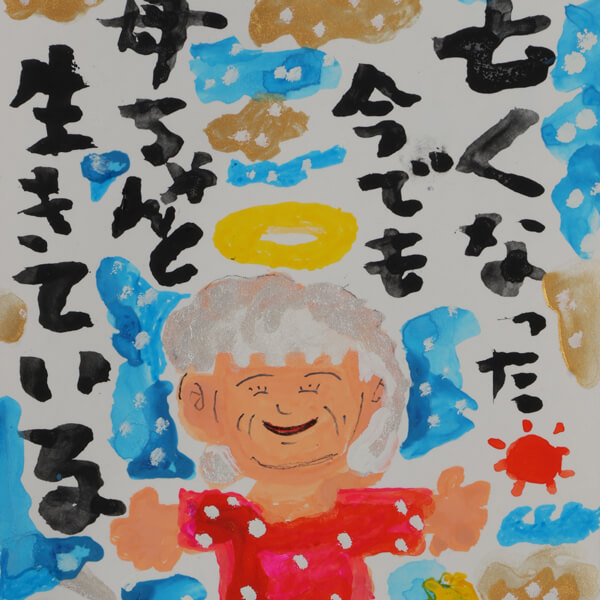 亡くなった
今でも
母ちゃんと
生きている